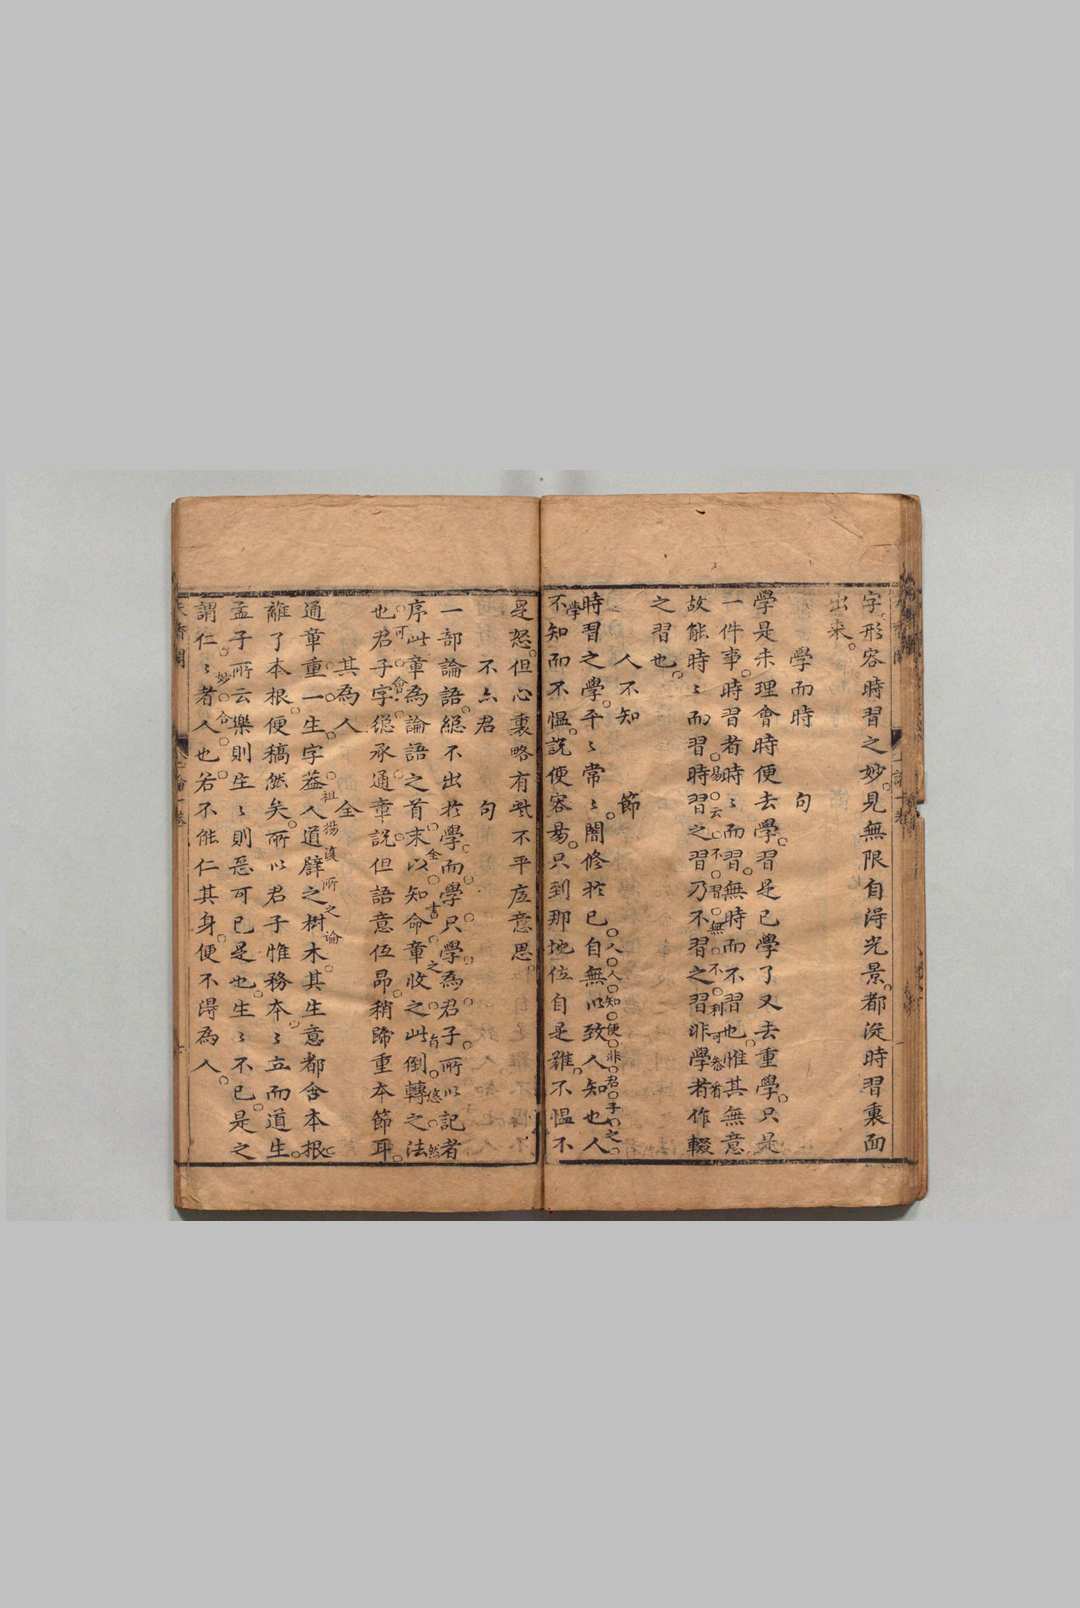 字形容時習之妙見無限自淂光景都從時習裏面
出来
學而時 句
學是未理會時便去學習是已學了又去重學只是
一件事時習者時〻而習無時而不習也惟其無意
故能時〻而習時習之習乃不習之習非學者作輟
易云不習無不利可參看
之習也
人不知 節
時習之學平〻常〻闇修於已自無以致人知也人
人人知便非君子之
學
不知而不愠説便容易只到那地位自是難不愠不
是怒但心裏略有些不平底意思
不亦君 句
一部論語總不出於學而學只學為君子所以記者
序此章為論語之首末以知命章收之此倒轉之法
全書之有悠然
可會
也君子字總承通章説但語意低昂稍歸重本節耳
其為人 全
通章重一生字葢人道譬之樹木其生意都含本根
祖楊復所之論
離了本根便稿然矣所以君子惟務本〻立而道生
孟子所云樂則生〻則惡可已是也生〻不已是之
謂仁〻者人也若不能仁其身便不淂為人